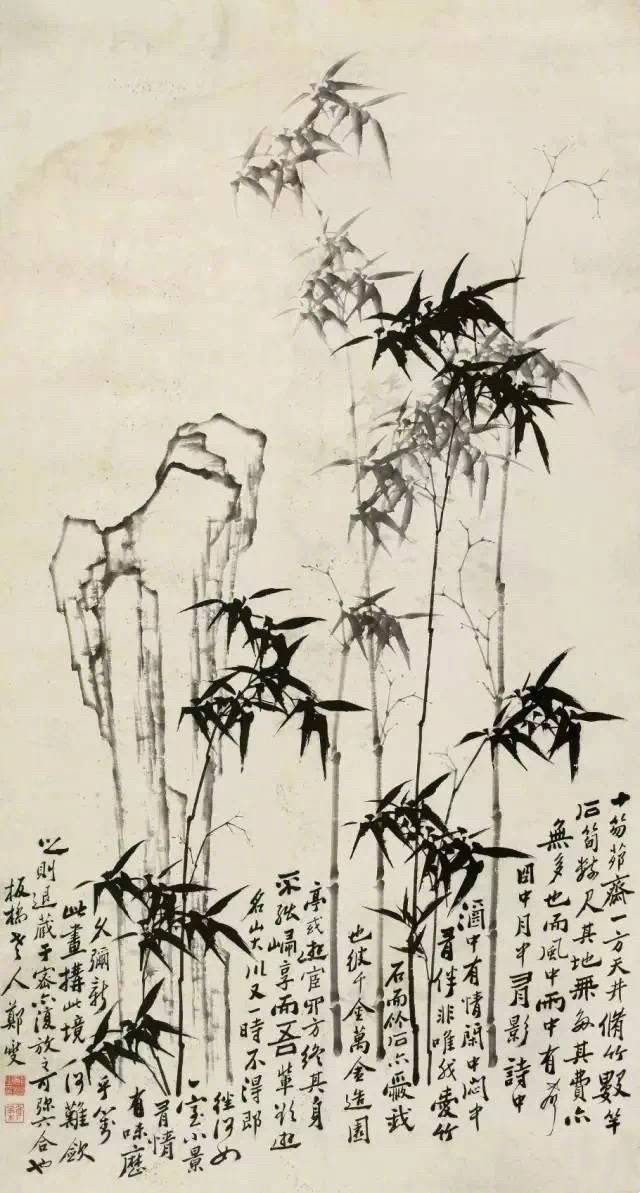 十笏茆齋一方天井脩竹數竿
石筍數尺其地無多其費亦
無多也而風中雨中有聲
日中月中有影詩中
酒中有情閑中悶中
有伴非唯我愛竹
石而竹石亦愛我
也彼千金萬金造園
亭或遊宦四方終其身
不能歸享而吾輩欲遊
名山大川又一時不得即
往何如
一室小景
有情
有味歷
久彌新
乎對
此畫搆此境何難歛
之則退藏于密亦復放之可弥六合也
板橋老人鄭燮